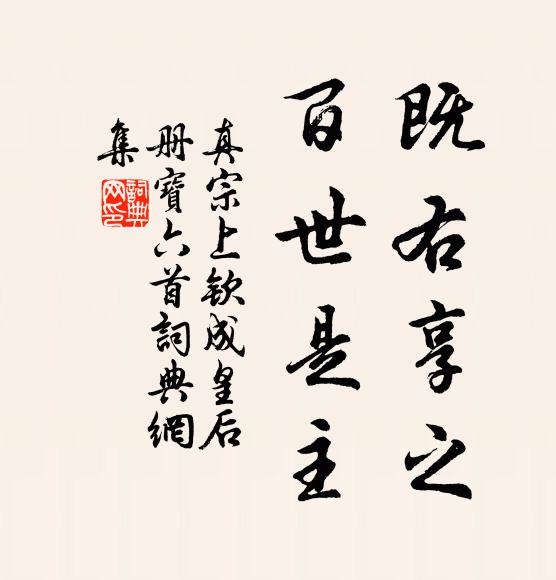 既右享之
百世是主
真宗上钦成皇后
册寶六首詞典網
集
詞典网印